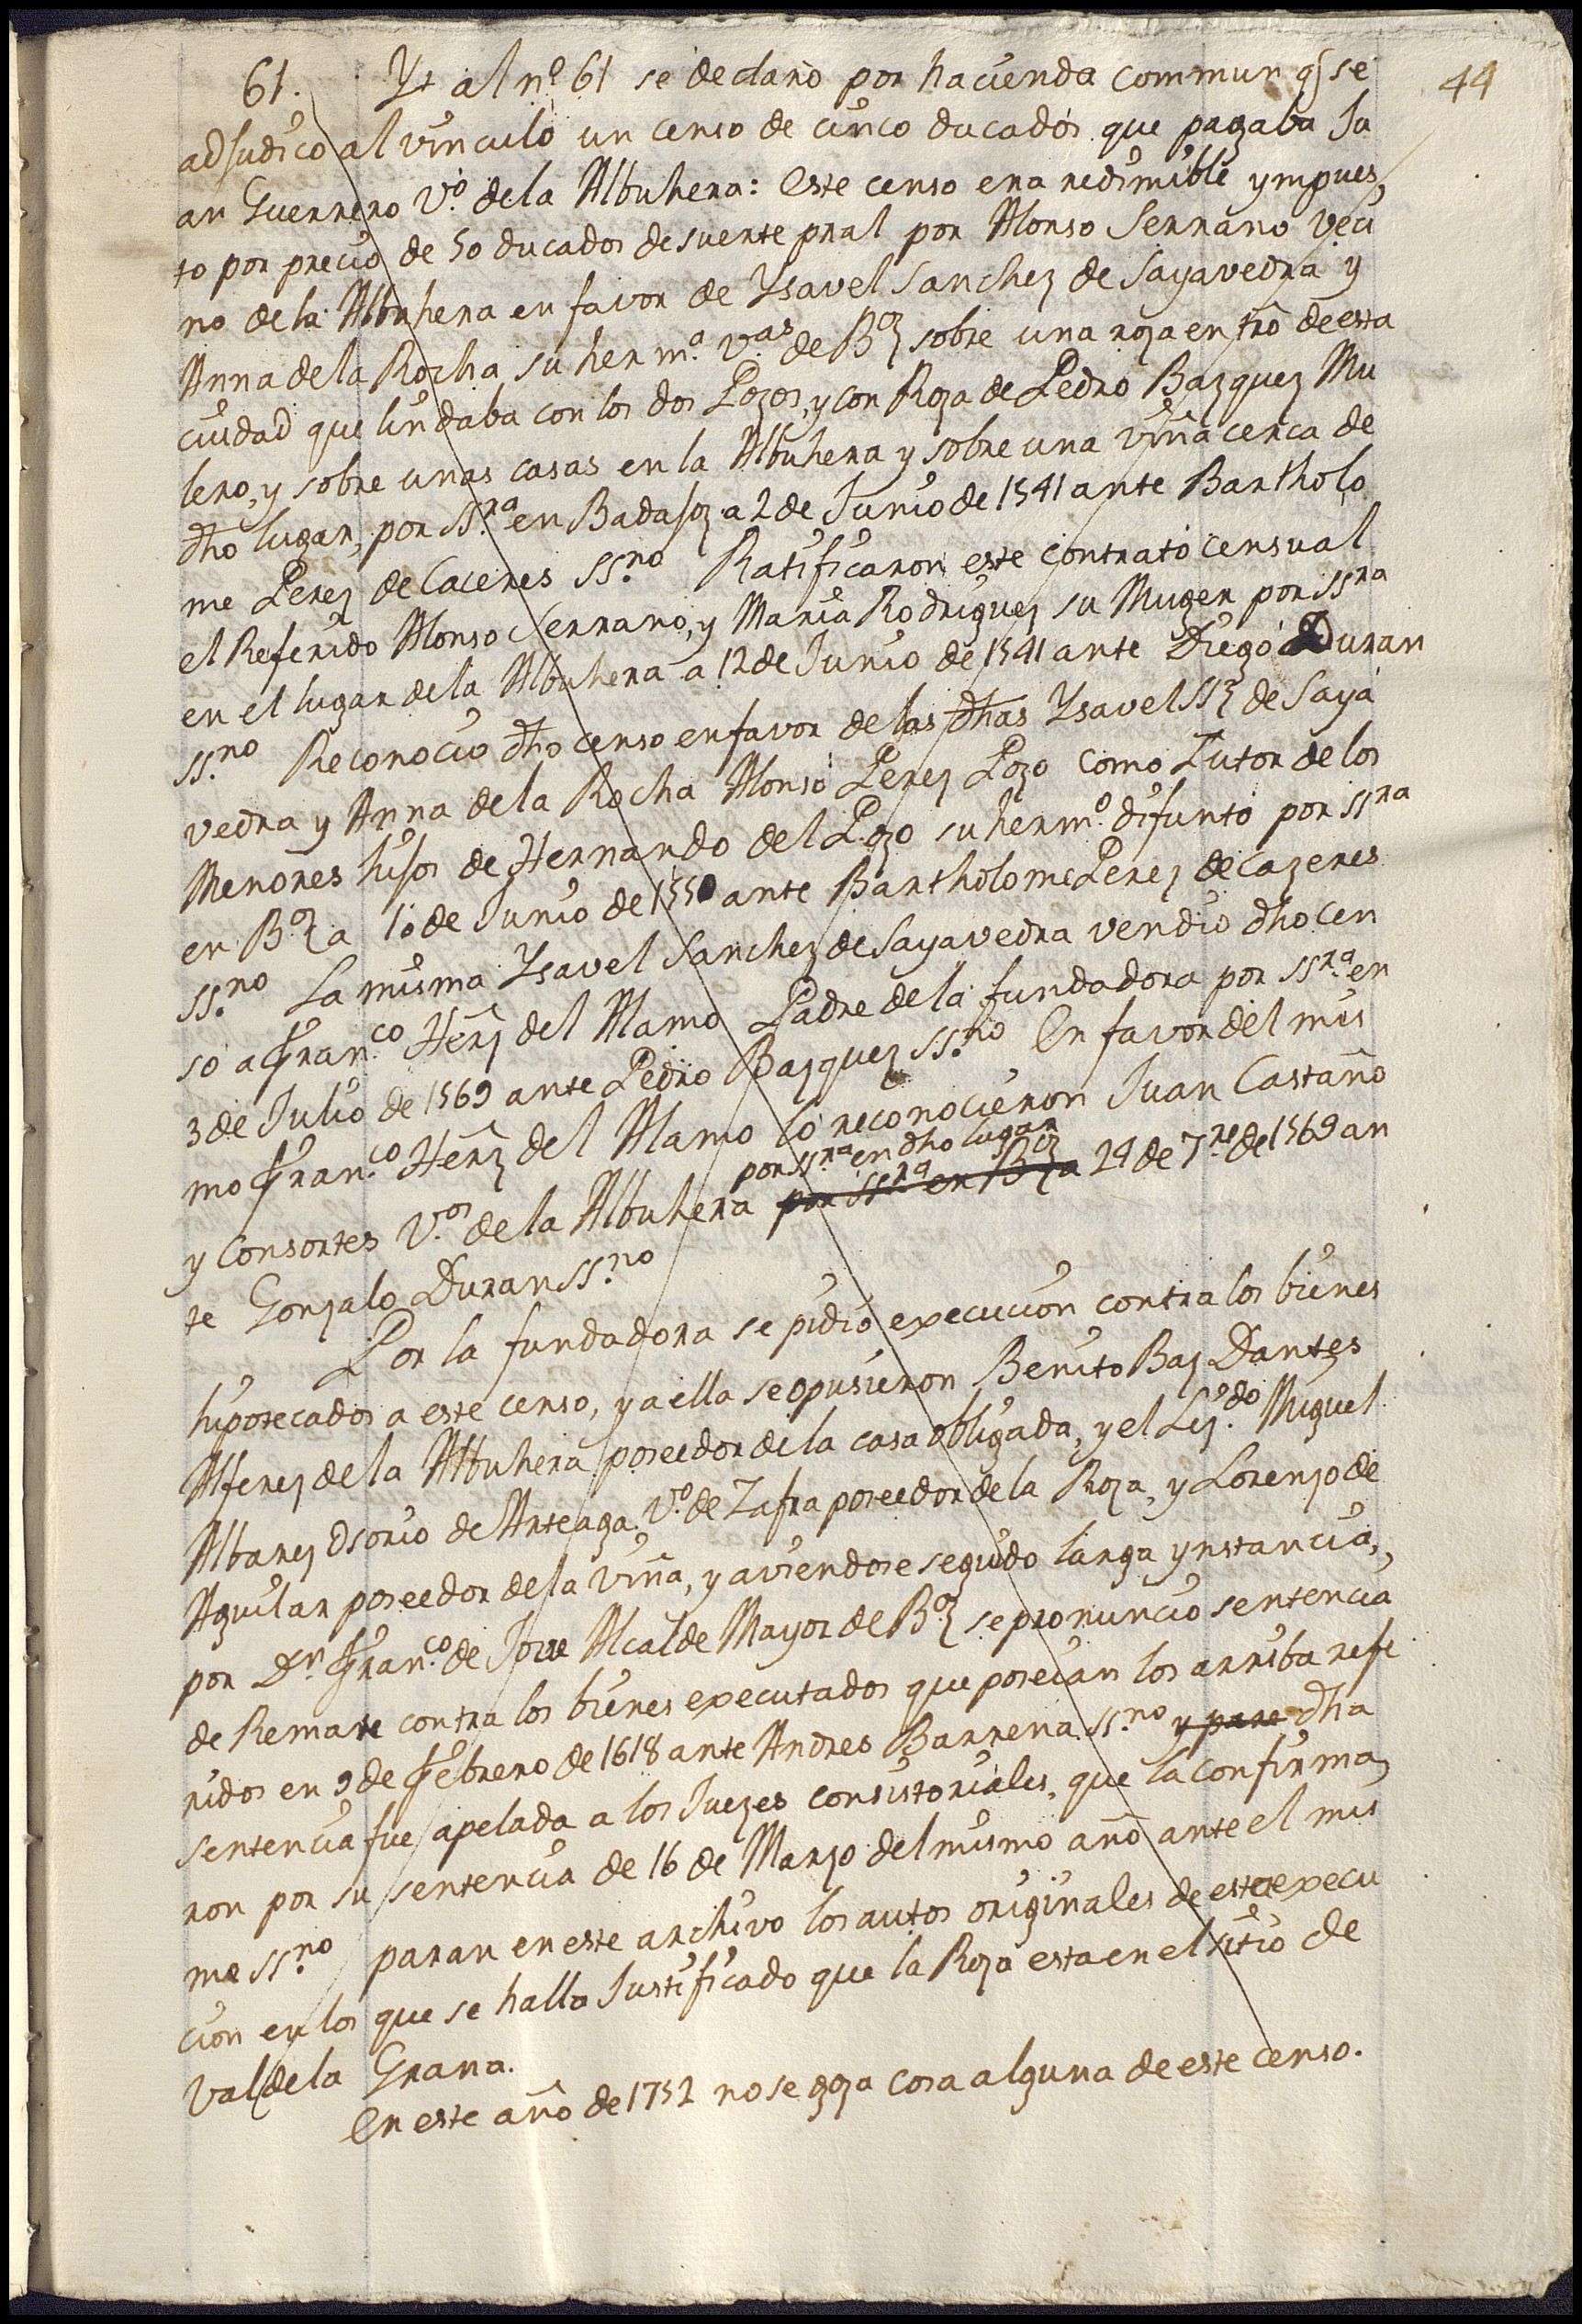 44
61. Yt al nº 61 se declarò por hacienda commun q se
adjudico al vinculo un censo de cinco ducados que pagaba Ju
an Guerrero Vº de la Albuhera: Este censo era redimible ympues
to por precio de 50 ducados de suerte pral por Alonso Serrano veci
no de la Albuhera en favor de Ysavel Sanchez de Sayavedra y
Anna de la Rocha su hermª vas de Boz sobre una roza en tro de esta
ciudad que lindaba con los dos Pozos, y con Roza de Pedro Bazquez Mu
lero, y sobre unas casas en la Albuhera y sobre una viña cerca de
dho lugar, por ssra en Badajoz a 2 de Junio de 1541 ante Bartholo
me Perez de Caceres ssno Ratificaron este contrato censual
el Referido Alonso Serrano, y Maria Rodriguez su Muger por ssra
en el lugar de la Albuhera a 12 de Junio de 1541 ante Diego Duran
ssno Reconocio dho censo en favor de las dhas Ysavel SSz de Saya
vedra y Anna de la Rocha Alonso Perez Pozo como Tutor de los
Menores hijos de Hernando del Pozo su hermº difunto por ssra
en Boz a 10 de Junio de 1550 ante Bartholome Perez de Cazeres
ssno La misma Ysavel Sanchez de Sayavedra vendio dho cen
so a Franco Herz del Alamo Padre de la fundadora por ssra en
3 de Julio de 1569 ante Pedro Bazquez ssno En favor del mis
mo Franco Herz del Alamo lo reconocieron Juan Castaño
por ssra en dho lugar
y Consortes Vos de la Albuhera por ssra en Boz a 24 de 7re de 1569 an
te Gonzalo Duran ssno
Por la fundadora se pidio execucion contra los bienes
hipotecados a este censo, y a ella se opusieron Benito Baz Dantes
Alferez de la Albuhera poseedor de la casa obligada, y el Lizdo Miguel
Albarez Osorio de Arteaga Vº de Zafra poseedor de la Roza, y Lorenzo de
Aguilar poseedor de la Viña, y aviendose seguido larga ynstancia,
por Dn Franco de Jove Alcalde Mayor de Boz se pronuncio sentencia
de Remate contra los bienes executados que poseian los arriba refe
ridos en 9 de Febrero de 1618 ante Andres Barrena ssno y para dha
sentencia fue apelada a los Juezes consistoriales, que la confirma
ron por su sentencia de 16 de Marzo del mismo año ante el mis
mo ssno paran en este archivo los autos originales de esta execu
cion en los que se halla Justificado que la Roza esta en el sitio de
Val de la Grana.
En este año de 1752 no se goza cosa alguna de este censo.